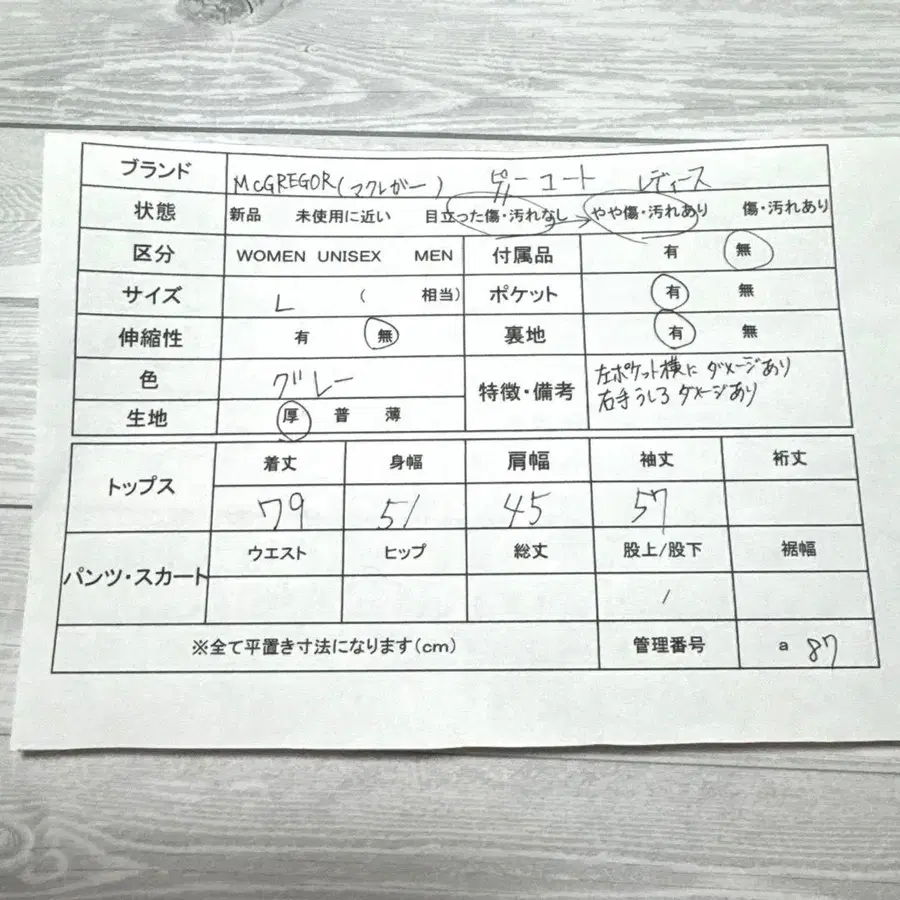 ブランド McGREGOR(マクレガー) ピーコート レディース
状態 新品 未使用に近い 目立った傷・汚れなし → やや傷・汚れあり 傷・汚れあり
区分 WOMEN UNISEX MEN 付属品 有 無
サイズ L ( 相当) ポケット 有 無
伸縮性 有 無 裏地 有 無
色 グレー 特徴・備考 左ポケット横に ダメージあり
右手うしろ ダメージあり
生地 厚 普 薄
トップス 着丈 身幅 肩幅 袖丈 裄丈
79 51 45 57
パンツ・スカート ウエスト ヒップ 総丈 股上/股下 裾幅
/
※全て平置き寸法になります(cm) 管理番号 a 87